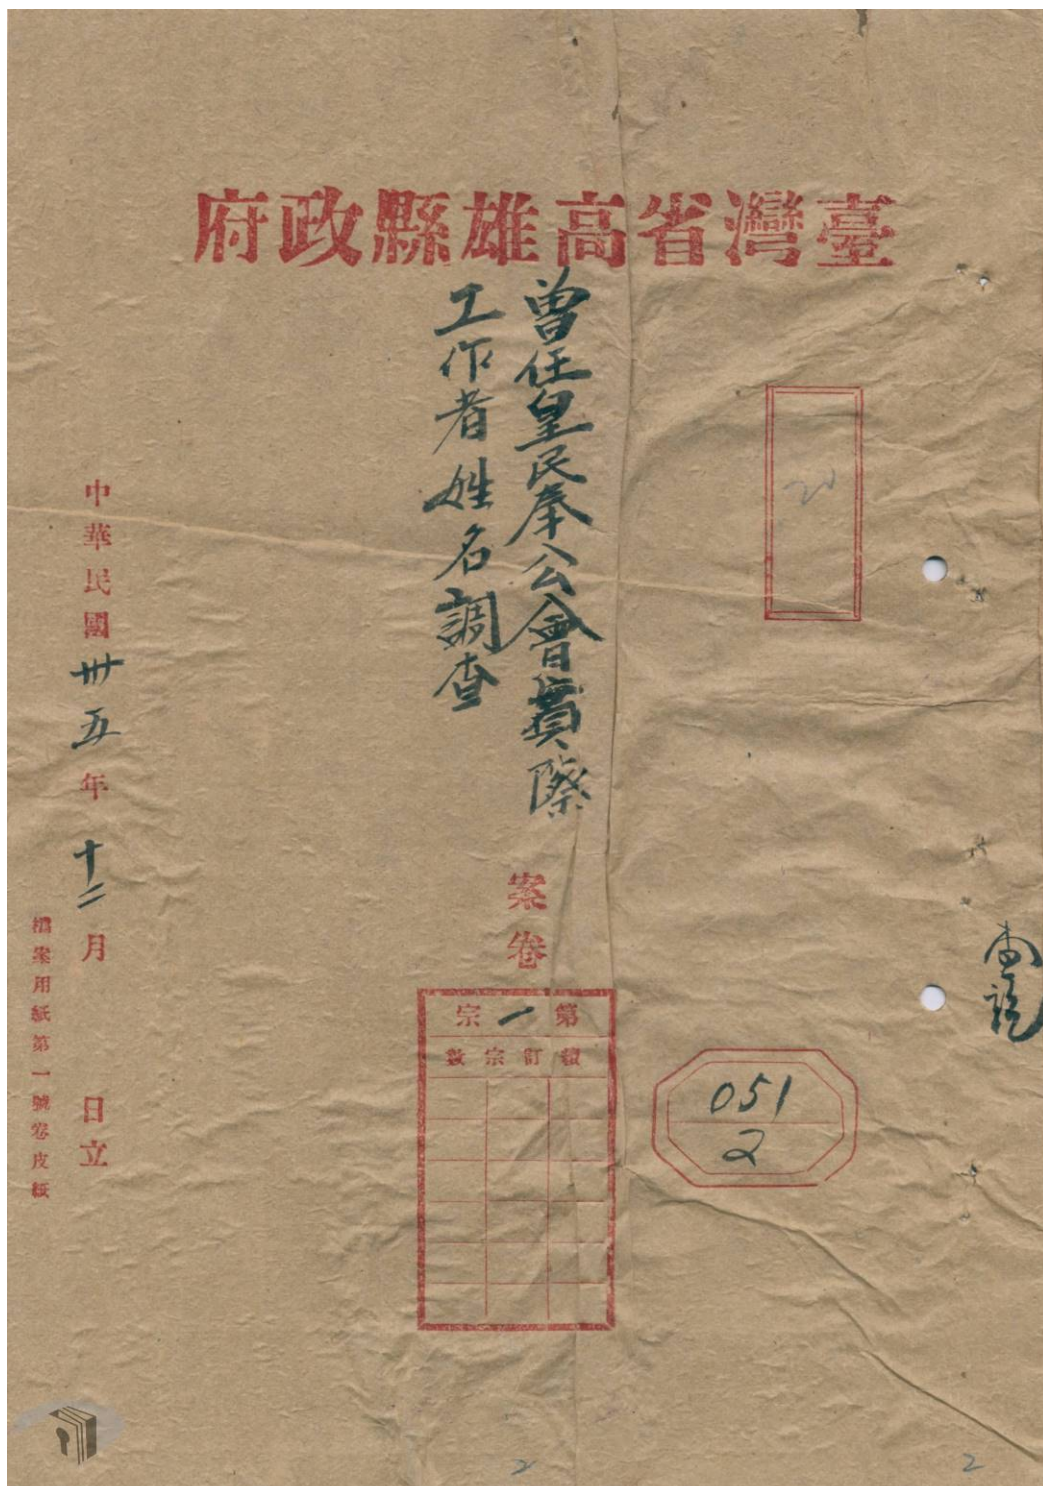 臺灣省高雄縣政府
20
曾任皇民奉公會實際
工作者姓名調查
案卷
第一宗
續訂宗數
051
2
中華民國卅五年十二月 日立
檔案用紙第一號卷皮紙
2
2